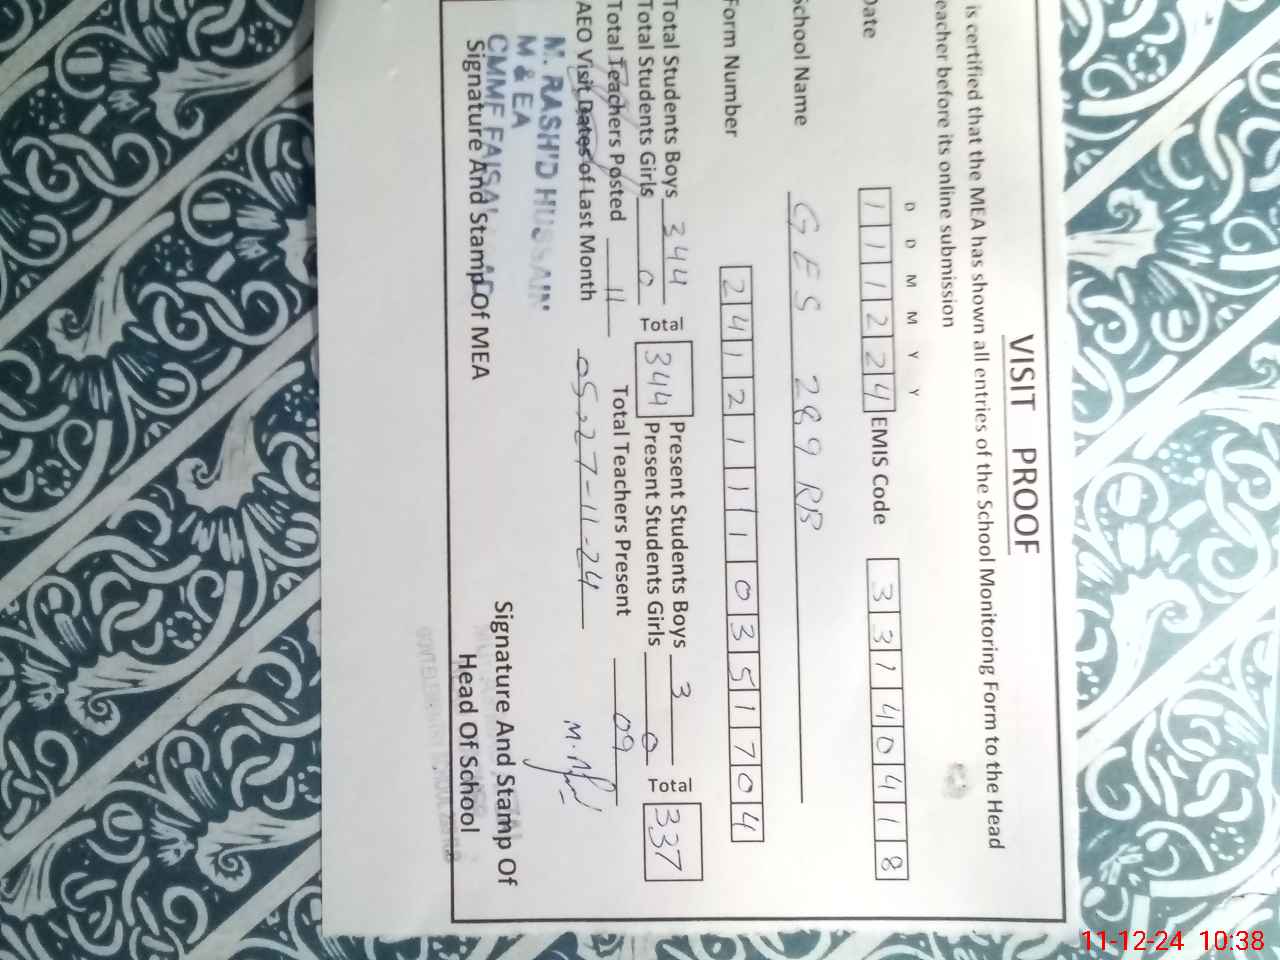 VISIT PROOF
is certified that the MEA has shown all entries of the School Monitoring Form to the Head
eacher before its online submission
D D M M Y Y
Date 111224 EMIS Code 33140418
School Name GES 289 RB
Form Number 241211110351704
Total Students Boys 344 Total 344 Present Students Boys 3 Total 337
Total Students Girls 0 Present Students Girls 0
Total Teachers Posted 11 Total Teachers Present 09
AEO Visit Dates of Last Month 05, 27-11-24
M. RASHID HUSSAIN
M & EA
CMMF FAISAL
Signature And Stamp Of MEA
Signature And Stamp Of
Head Of School
11-12-24 10:38